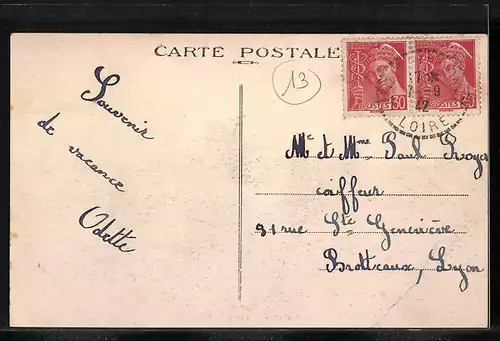 CARTE POSTALE
13
POSTES 30
POSTES 30
-9
42
LOIRE
Souvenir
de vacance
Odette
Mr et Mme Paul
coiffeur
91 rue Ste Geneviève
Brotteaux, Lyon